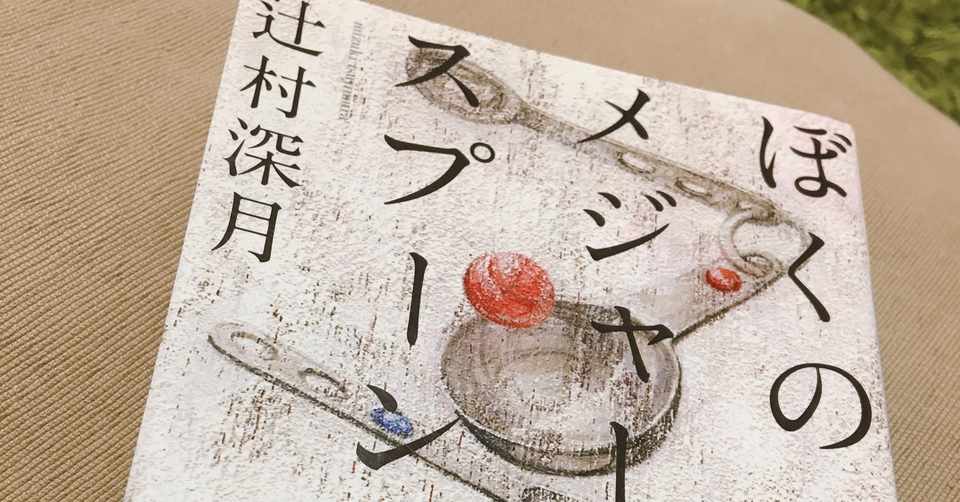 ぼくの
メジャー
スプーン
辻村深月
mizuki tsujimura